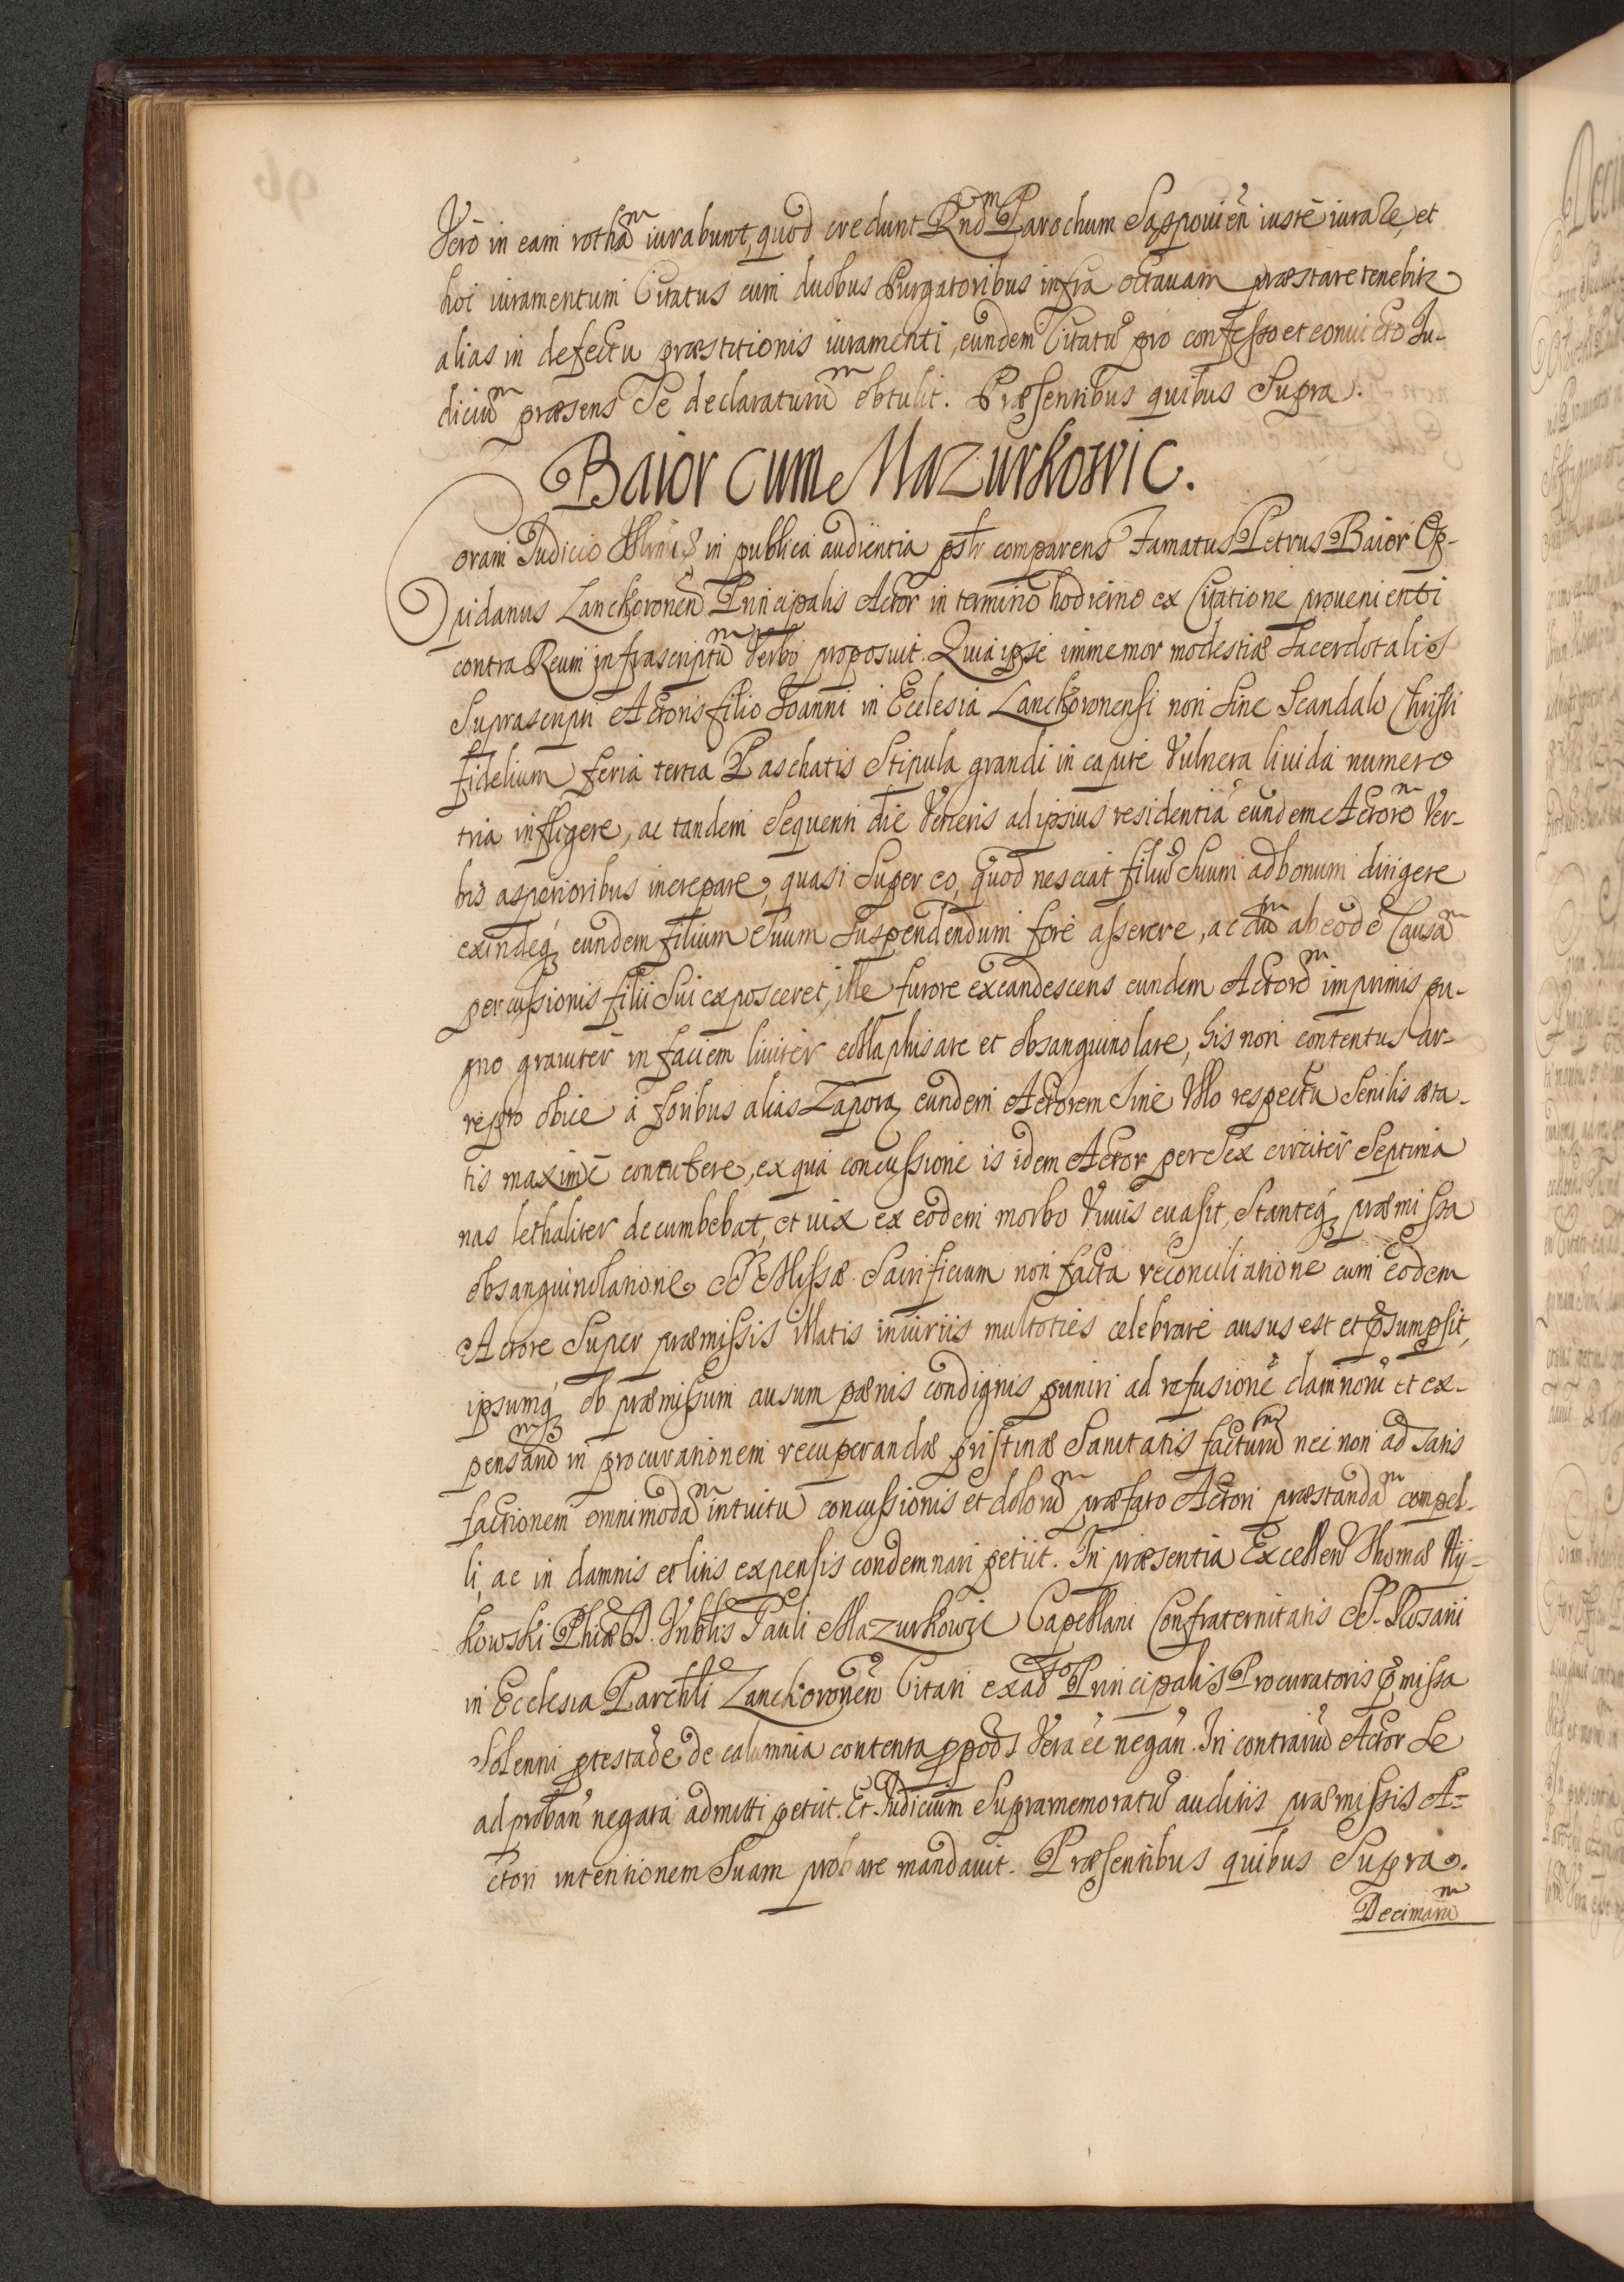 Vero in eam rotham iurabunt, quod credunt Rndm Parochum Saspouien iuste iurasse, et
hoc iuramentum Citatus cum duobus Purgatoribus infra octauam præstare tenebitr
alias in defectu præstitionis iuramenti, eundem Citatū pro confesso et conuicto Iu-
diciūm præsens Se declaraturūm obtulit. Præsentibus quibus Supra.
Baior cum Mazurkowic.
Coram Iudicio in publica audientia psltr comparens Famatus Petrus Baior Op-
pidanus Lanckoronen Principalis Actor in termino hodierno ex Citatione prouenienti
contra Reum infrascriptūm Verbo proposuit. Quia ipse immemor modestiæ Sacerdotalis
Suprascripti Actoris filio Ioanni in Ecclesia Lanckoronensi non Sine Scandalo Christi
fidelium feria tertia Paschatis Stipula grandi in capite Vulnera liuida numero
tria infligere, ac tandem Sequenti die Veneris ad ipsius residentiā eundem Actorem Ver-
bis asperioribus increpare, quasi Super eo, quod nesciat filiū Suum ad bonum dirigere
exindeq₃ eundem filium Suum Suspendendum fore asserere, ac dūm ab eodē Causām
percussionis filii Sui exposceret, ille furore excandescens eundem Actorem imprimis pu-
gno grauiter in faciem liuiter collaphisare et obsanguinolare, his non contentus ar-
repto obice à foribus alias Zapora eundem Actorem Sine Vllo respectu Senilis æta-
tis maxime contundere, ex qua concussione is idem Actor per Sex circiter Septima
nas lethaliter decumbebat, et uix ex eodem morbo Viuus euasit, Stanteq₃ præmissa
obsanguinolatione SS Missæ Sacrificium non facta reconciliatione cum eodem
Actore Super præmissis illatis iniuriis multoties celebrare ausus est et psumpsit,
ipsumq₃ ob præmissum ausum pænis condignis puniri ad refusionē damnorū et ex-
pensarum in procurationem recuperandæ pristinæ Sanitatis facturūm nec non ad Satis
factionem omnimodām intuitu concussionis et dolorūm præfato Actori præstandām compel-
li, ac in damnis et litis expensis condemnari petiit. In præsentia Excellen Thomæ Ny-
kowski Phiæ D. Vnblis Pauli Mazurkowic Capellani Confraternitatis SS. Rosarii
in Ecclesia Parchli Lanckoronen Citati ex ad Principalis Procuratoris pmissa
Solenni ptestaōe de calumnia contenta ppods Vera eē negan. In contrariū Actor Se
ad proban negata admitti petiit. Et Iudicium Supramemoratū auditis præmissis A-
ctori intentionem Suam probare mandauit. Præsentibus quibus Supra.
Decimarūm